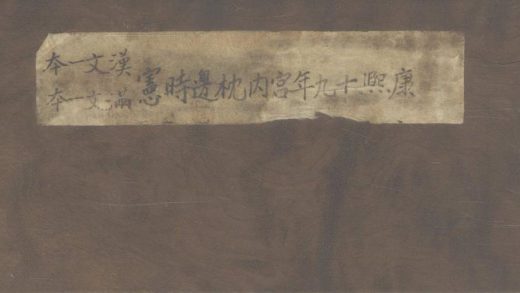 康熙十九年宮内枕邊時憲
漢文一本
滿文一本